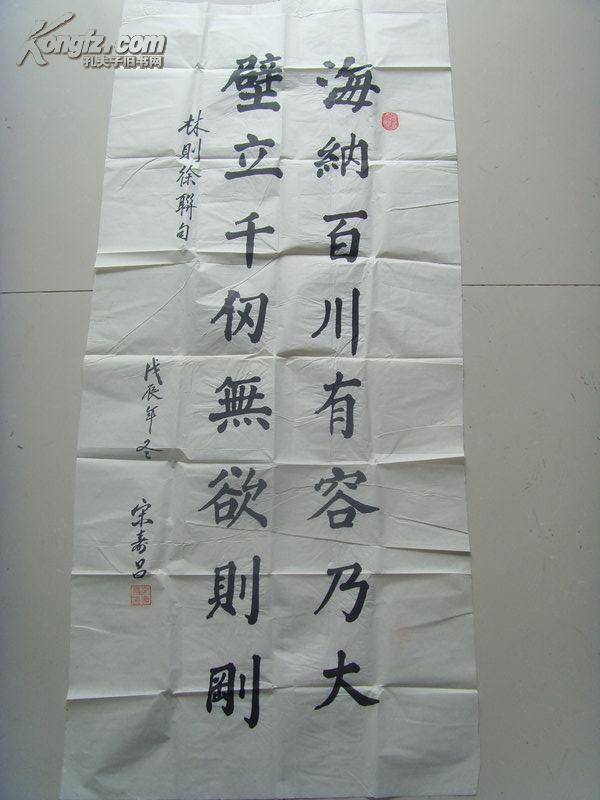 海納百川有容乃大
壁立千仞無欲則剛
林則徐聯句
戊辰年冬
宋壽昌
Kongfz.com
孔夫子旧书网